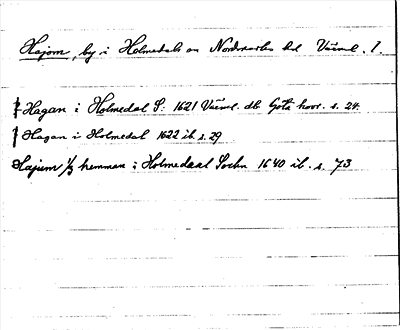 Hajom, by i Holmedals sn Nordmarks hd Värml. 1.
Hagan i Holmedal S: 1621 Värml. db Göta hovr. s. 24.
Hagan i Holmedal 1622 ib s. 29
Hajum 1/2 hemman i Holmedaal Sochn 1640 ib. s. 73